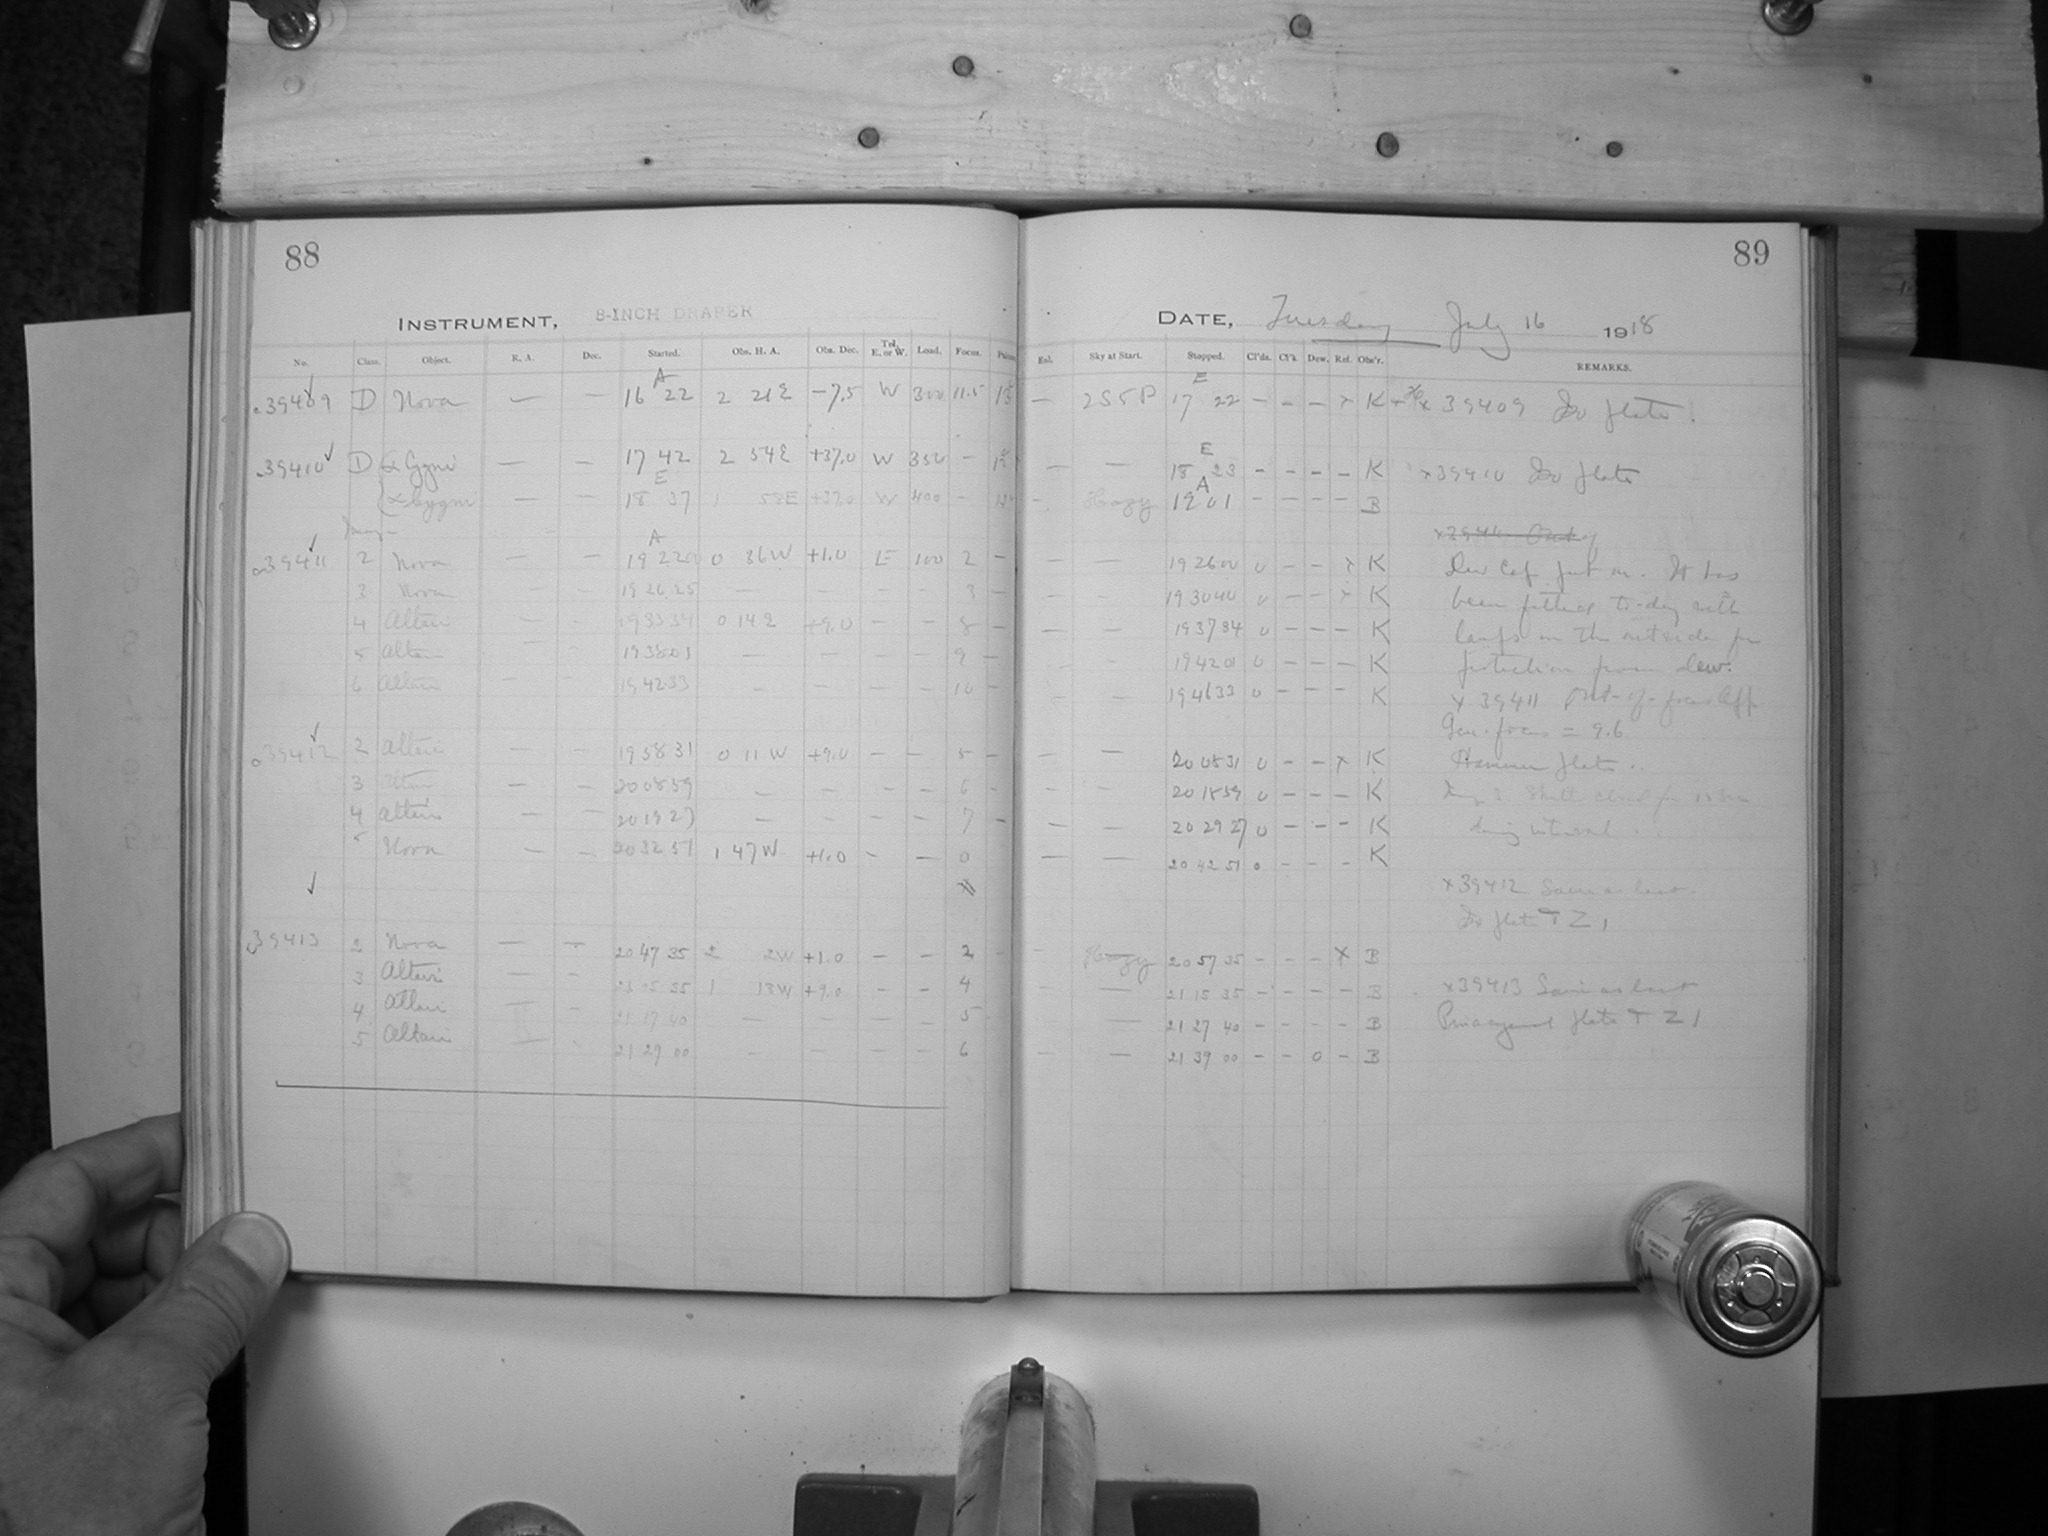 88
INSTRUMENT, 8-INCH DRAPER
No. Class. Object. R. A. Dec. Started. Obs. H. A. Obs. Dec. Tel. E. or W. Load. Focus.
A
39409 D Nova — — 16 22 2 21E −7.5 W 300 11.5
39410 D α Cygni — — 17 42 2 54E +37.0 W 350 -
E
α Cygni — — 18 37 1 58E +37.0 W 400 -
Image
A
39411 2 Nova — — 19 22 00 0 36W +1.0 E 100 2 —
3 Nova — — 19 26 25 — — — — 3 —
4 Altair — — 19 33 34 0 14E +9.0 — — 8 —
5 Altair — — 19 38 01 — — — — 9 —
6 Altair — — 19 42 33 — — — — 10 —
39412 2 Altair — — 19 58 31 0 11W +9.0 — — 5 —
3 Altair — — 20 08 59 — — — — 6 —
4 Altair — — 20 19 27 — — — — 7 —
5 Nova — — 20 32 51 1 47W +1.0 - — 0
39413 2 Nova — — 20 47 35 2 2W +1.0 — — 2 -
3 Altair — — 21 05 35 1 13W +9.0 — — 4
4 Altair — 21 17 40 — — — — 5
5 Altair — 21 29 00 — — — — 6
89
DATE, Tuesday July 16 1918
Enl. Sky at Start. Stopped. Cl'ds. Cl'k. Dew. Ref. Obs'r. REMARKS.
E
— 2S5P 17 22 - - - x K x 39409 Do plate.
E
— — 18 23 - - - - K x 39410 Do plate
A
- Hazy 19 01 - - - - B
— — 19 26 00 0 - - x K Dew Cap put on. It has
— — 19 30 40 0 - - x K been fitted to-day with
— — 19 37 34 0 - - - K lamps on the outside for
- — 19 42 01 0 - - - K protection from dew.
- — 19 46 33 0 - - - K x 39411 Out-of-focus
Gen. focus = 9.6
— — 20 08 31 0 - - x K Hammer plate
- — 20 18 59 0 - - - K
— — 20 29 27 0 - - - K during interval
— — 20 42 51 0 - - - K
x 39412 Same as last.
Do plate T Z 1
- Hazy 20 57 35 - - - x B
- — 21 15 35 - - - - B x 39413 Same as last
— 21 27 40 - - - - B plate T Z 1
— — 21 39 00 - - 0 - B